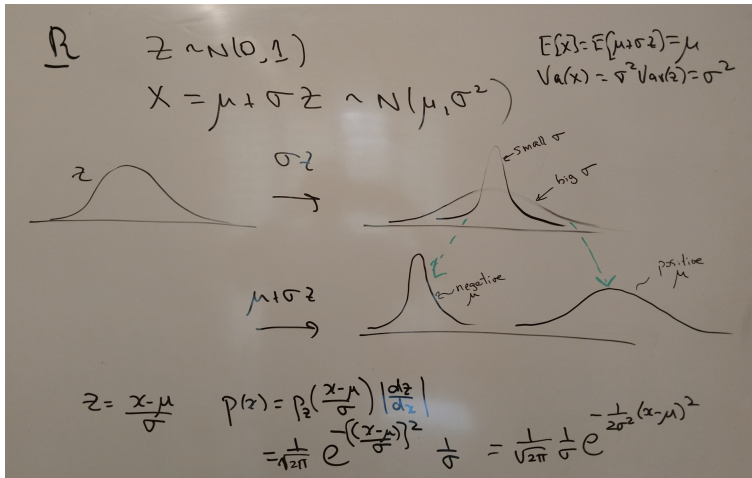 R Z ~ N(0,1)
X = μ + σ Z ~ N(μ, σ²)
E[X] = E[μ+σZ] = μ
Var(X) = σ² Var(Z) = σ²
Z
σZ
small σ
big σ
μ+σZ
negative μ
positive μ
z = (x-μ)/σ p(x) = p_z((x-μ)/σ) |dz/dx|
= 1/√2π e^{-[((x-μ)/σ)]²} 1/σ = 1/√2π 1/σ e^{-1/2σ² (x-μ)²}